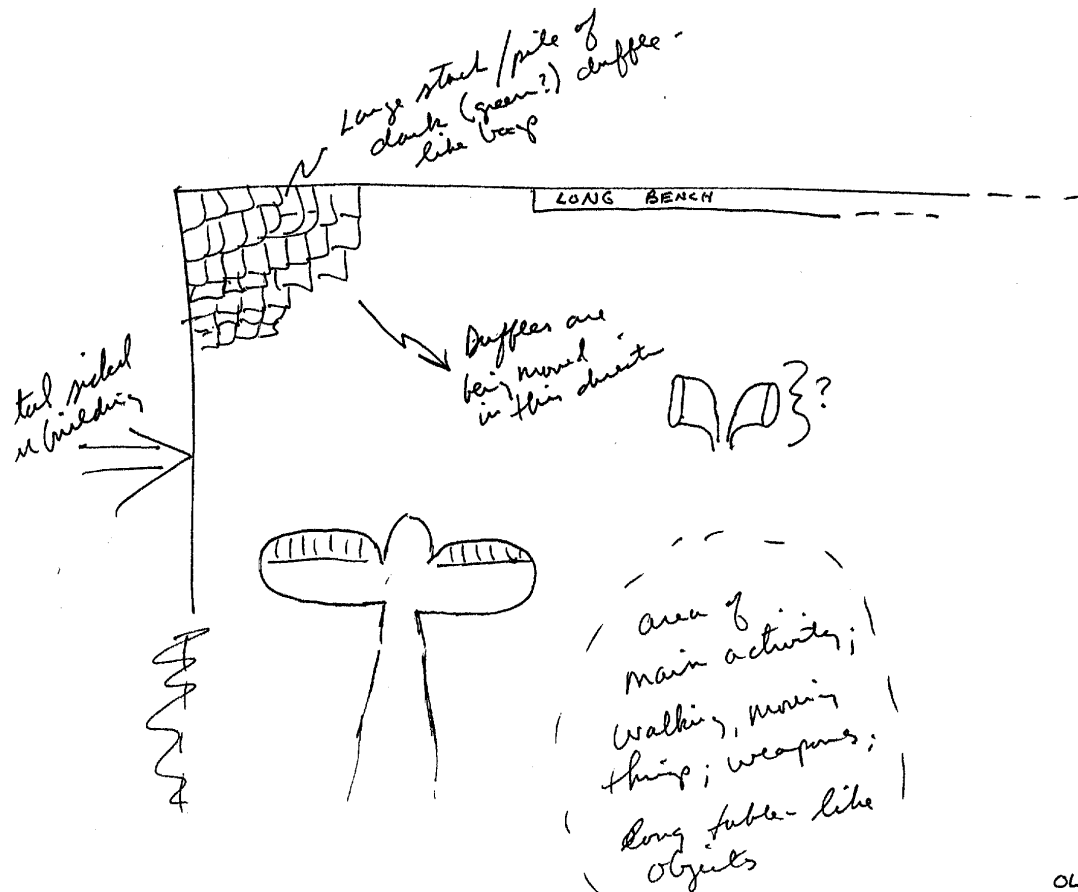 Large stack/pile of
dark (green?) duffle-
like bags
LONG BENCH
Duffles are
being moved
in this direction
?
tal sided
building
area of
main activity;
walking, moving
things; weapons;
long table-like
objects